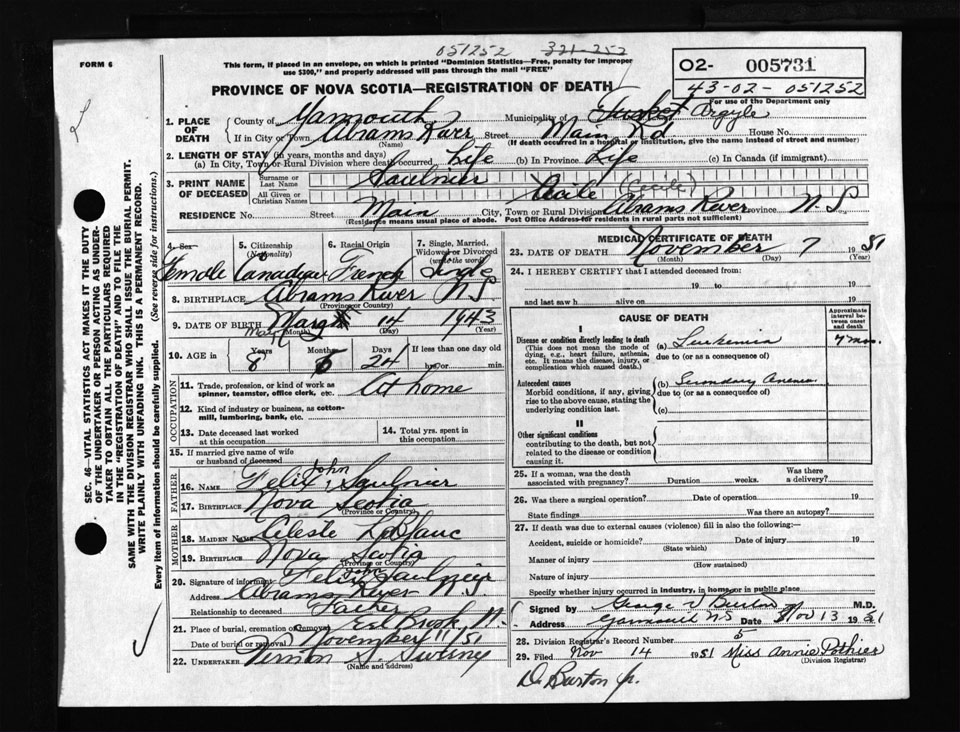 051252 321-252
FORM 6
This form, if placed in an envelope, on which is printed "Dominion Statistics—Free, penalty for improper
use $300," and properly addressed will pass through the mail "FREE"
O2- 005731
43-02-051252
PROVINCE OF NOVA SCOTIA—REGISTRATION OF DEATH
For use of the Department only
1. PLACE OF DEATH County of Yarmouth Municipality of Tusket Argyle
If in City or Town Abrams River (Name) Street Main Rd House No.
(If death occurred in a hospital or institution, give its name instead of street and number)
2. LENGTH OF STAY (in years, months and days)
(a) In City, Town or Rural Division where death occurred Life (b) In Province Life (c) In Canada (if immigrant)
3. PRINT NAME OF DECEASED Surname or Last Name Saulnier
All Given or Christian Names Cecile (Cecile)
RESIDENCE No. Street Main City, Town or Rural Division Abrams River Province N.S
(Residence means usual place of abode. Post Office Address for residents in rural parts not sufficient)
4. Sex 5. Citizenship (Nationality) 6. Racial Origin 7. Single, Married, Widowed or Divorced (write the word)
Female Canadian French Single
8. BIRTHPLACE Abrams River N.S.
(Province or Country)
9. DATE OF BIRTH May 14 1943
(Month) (Day) (Year)
10. AGE in Years Months Days If less than one day old
8 5 24 hrs. or min.
OCCUPATION
11. Trade, profession, or kind of work as spinner, teamster, office clerk, etc. At home
12. Kind of industry or business, as cotton-mill, lumbering, bank, etc.
13. Date deceased last worked at this occupation 14. Total yrs. spent in this occupation
15. If married give name of wife or husband of deceased
FATHER
16. NAME Felix John Saulnier
17. BIRTHPLACE Nova Scotia
(Province or Country)
MOTHER
18. MAIDEN NAME Celeste LeBlanc
19. BIRTHPLACE Nova Scotia
(Province or Country)
20. Signature of informant Felix John Saulnier
Address Abrams River N.S.
Relationship to deceased Father
21. Place of burial, cremation or removal Eel Brook, N.
Date of burial or removal November 11/51
22. UNDERTAKER Vernon S. Sweeny
(Name and address)
MEDICAL CERTIFICATE OF DEATH
23. DATE OF DEATH November 7 1951
(Month) (Day) (Year)
24. I HEREBY CERTIFY that I attended deceased from:
19 to 19
and last saw h alive on 19
CAUSE OF DEATH
Approximate interval between onset and death
I
Disease or condition directly leading to death (a) Leukemia 7 mos.
(This does not mean the mode of dying, e.g., heart failure, asthenia, etc. It means the disease, injury, or complication which caused death.)
due to (or as a consequence of)
Antecedent causes (b) Secondary Anemia
Morbid conditions, if any, giving rise to the above cause, stating the underlying condition last.
due to (or as a consequence of)
(c)
II
Other significant conditions
contributing to the death, but not related to the disease or condition causing it.
25. If a woman, was the death associated with pregnancy? Duration weeks. Was there a delivery?
26. Was there a surgical operation? Date of operation 19
State findings Was there an autopsy?
27. If death was due to external causes (violence) fill in also the following:—
Accident, suicide or homicide? Date of injury 19
(State which)
Manner of injury
(How sustained)
Nature of injury
Specify whether injury occurred in industry, in home or in public place
Signed by George V Burton M.D.
Address Yarmouth N.S Date Nov 13 1951
28. Division Registrar's Record Number 5
29. Filed Nov 14 1951 Miss Annie Pothier
(Division Registrar)
D. Burton Jr.
SEC. 46—VITAL STATISTICS ACT MAKES IT THE DUTY
OF THE UNDERTAKER OR PERSON ACTING AS UNDER-
TAKER TO OBTAIN ALL THE PARTICULARS REQUIRED
IN THE "REGISTRATION OF DEATH" AND TO FILE THE
SAME WITH THE DIVISION REGISTRAR WHO SHALL ISSUE THE BURIAL PERMIT.
WRITE PLAINLY WITH UNFADING INK. THIS IS A PERMANENT RECORD.
Every item of information should be carefully supplied. (See reverse side for instructions.)